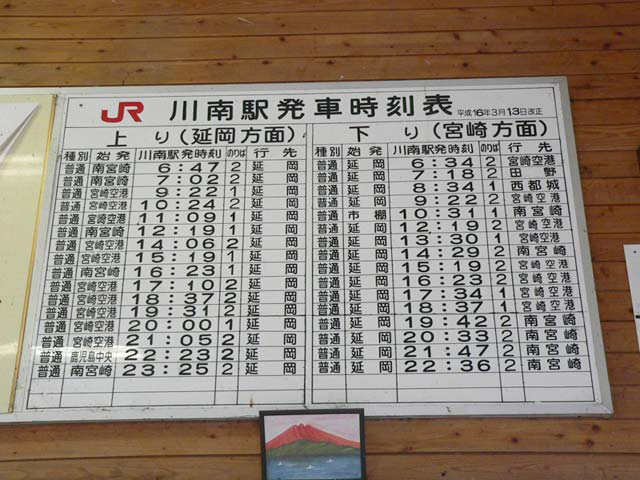 JR 川南駅発車時刻表 平成16年3月13日改正
上り(延岡方面) 下り(宮崎方面)
種別 始発 川南駅発時刻 のりば 行先 種別 始発 川南駅発時刻 のりば 行先
普通 南宮崎 6:47 2 延岡 普通 延岡 6:34 2 宮崎空港
普通 南宮崎 7:02 2 延岡 普通 延岡 7:18 2 田野
普通 宮崎空港 9:22 1 延岡 普通 延岡 8:34 1 西都城
普通 宮崎空港 10:24 2 延岡 普通 延岡 9:22 2 宮崎空港
普通 宮崎空港 11:09 1 延岡 普通 市棚 10:31 1 南宮崎
普通 南宮崎 12:19 1 延岡 普通 延岡 12:19 2 宮崎空港
普通 宮崎空港 14:06 2 延岡 普通 延岡 13:30 1 宮崎空港
普通 宮崎空港 15:19 1 延岡 普通 延岡 14:29 2 南宮崎
普通 南宮崎 16:23 1 延岡 普通 延岡 15:19 2 宮崎空港
普通 宮崎空港 17:10 2 延岡 普通 延岡 16:23 2 宮崎空港
普通 宮崎空港 18:37 2 延岡 普通 延岡 17:34 1 宮崎空港
普通 宮崎空港 19:31 2 延岡 普通 延岡 18:37 1 宮崎空港
普通 宮崎空港 20:00 1 延岡 普通 延岡 19:42 2 南宮崎
普通 宮崎空港 21:05 2 延岡 普通 延岡 20:33 2 南宮崎
普通 鹿児島中央 22:23 2 延岡 普通 延岡 21:47 2 南宮崎
普通 南宮崎 23:25 2 延岡 普通 延岡 22:36 2 南宮崎